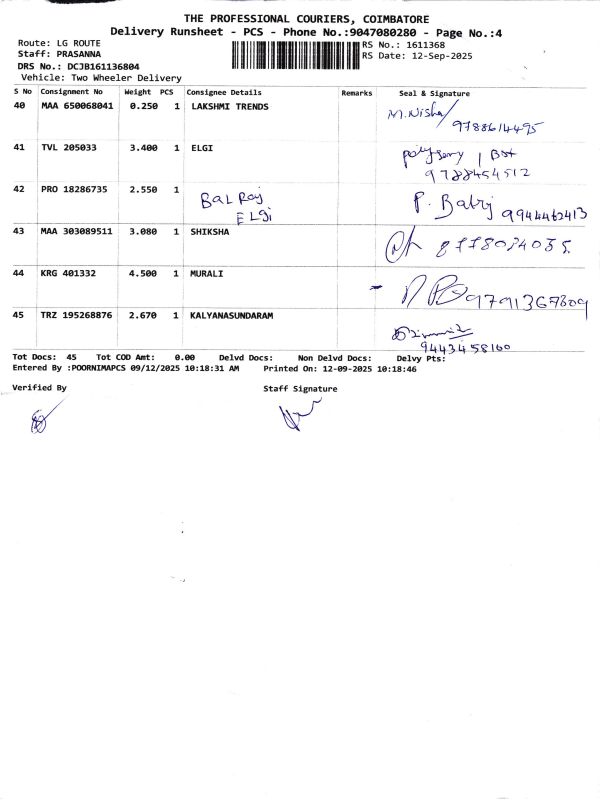 THE PROFESSIONAL COURIERS, COIMBATORE
Delivery Runsheet - PCS - Phone No.:9047080280 - Page No.:4
Route: LG ROUTE
RS No.: 1611368
Staff: PRASANNA
RS Date: 12-Sep-2025
DRS No.: DCJB161136804
Vehicle: Two Wheeler Delivery
S No Consignment No Weight PCS Consignee Details Remarks Seal & Signature
40 MAA 650068041 0.250 1 LAKSHMI TRENDS M.Nisha
9788614495
41 TVL 205033 3.400 1 ELGI
9788454512
42 PRO 18286735 2.550 1
Bal Raj
ELgi
9944462413
43 MAA 303089511 3.080 1 SHIKSHA
44 KRG 401332 4.500 1 MURALI
9791367809
45 TRZ 195268876 2.670 1 KALYANASUNDARAM
9443458160
Tot Docs: 45 Tot COD Amt: 0.00 Delvd Docs: Non Delvd Docs: Delvy Pts:
Entered By :POORNIMAPCS 09/12/2025 10:18:31 AM Printed On: 12-09-2025 10:18:46
Verified By Staff Signature